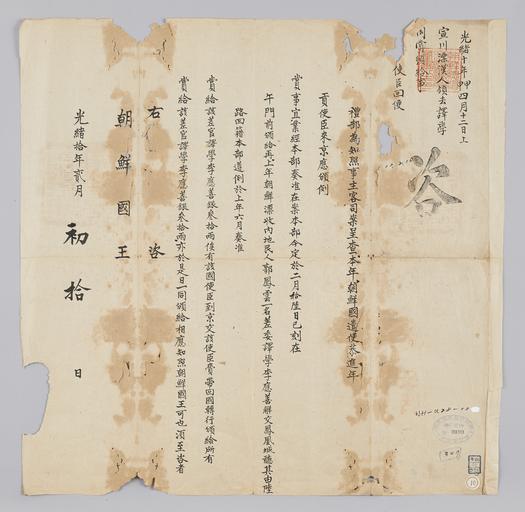 光緒十年甲申四月十二日上
宣川漂漢人領去譯學
使臣回便
咨
禮部為知照事主客司案呈查本年朝鮮國遣使恭進年
貢使臣來京應頒例
賞事宜業經本部奏准在案本部今定於二月拾陸日巳刻在
午門前頒給再上年朝鮮漂收內地民人郭鳳雲一名差委譯學李應善解交鳳凰城聽其由陸
路回籍本部遵例於上年六月奏准
賞給該差官譯學李應善銀叁拾兩俟有該國使臣到京交該使臣賞帶回國轉行頒給所有
賞給該差官譯學李應善銀叁拾兩亦於是日一同頒給相應知照朝鮮國王可也須至咨者
右咨
朝鮮國王
光緒拾年貳月初拾日
10